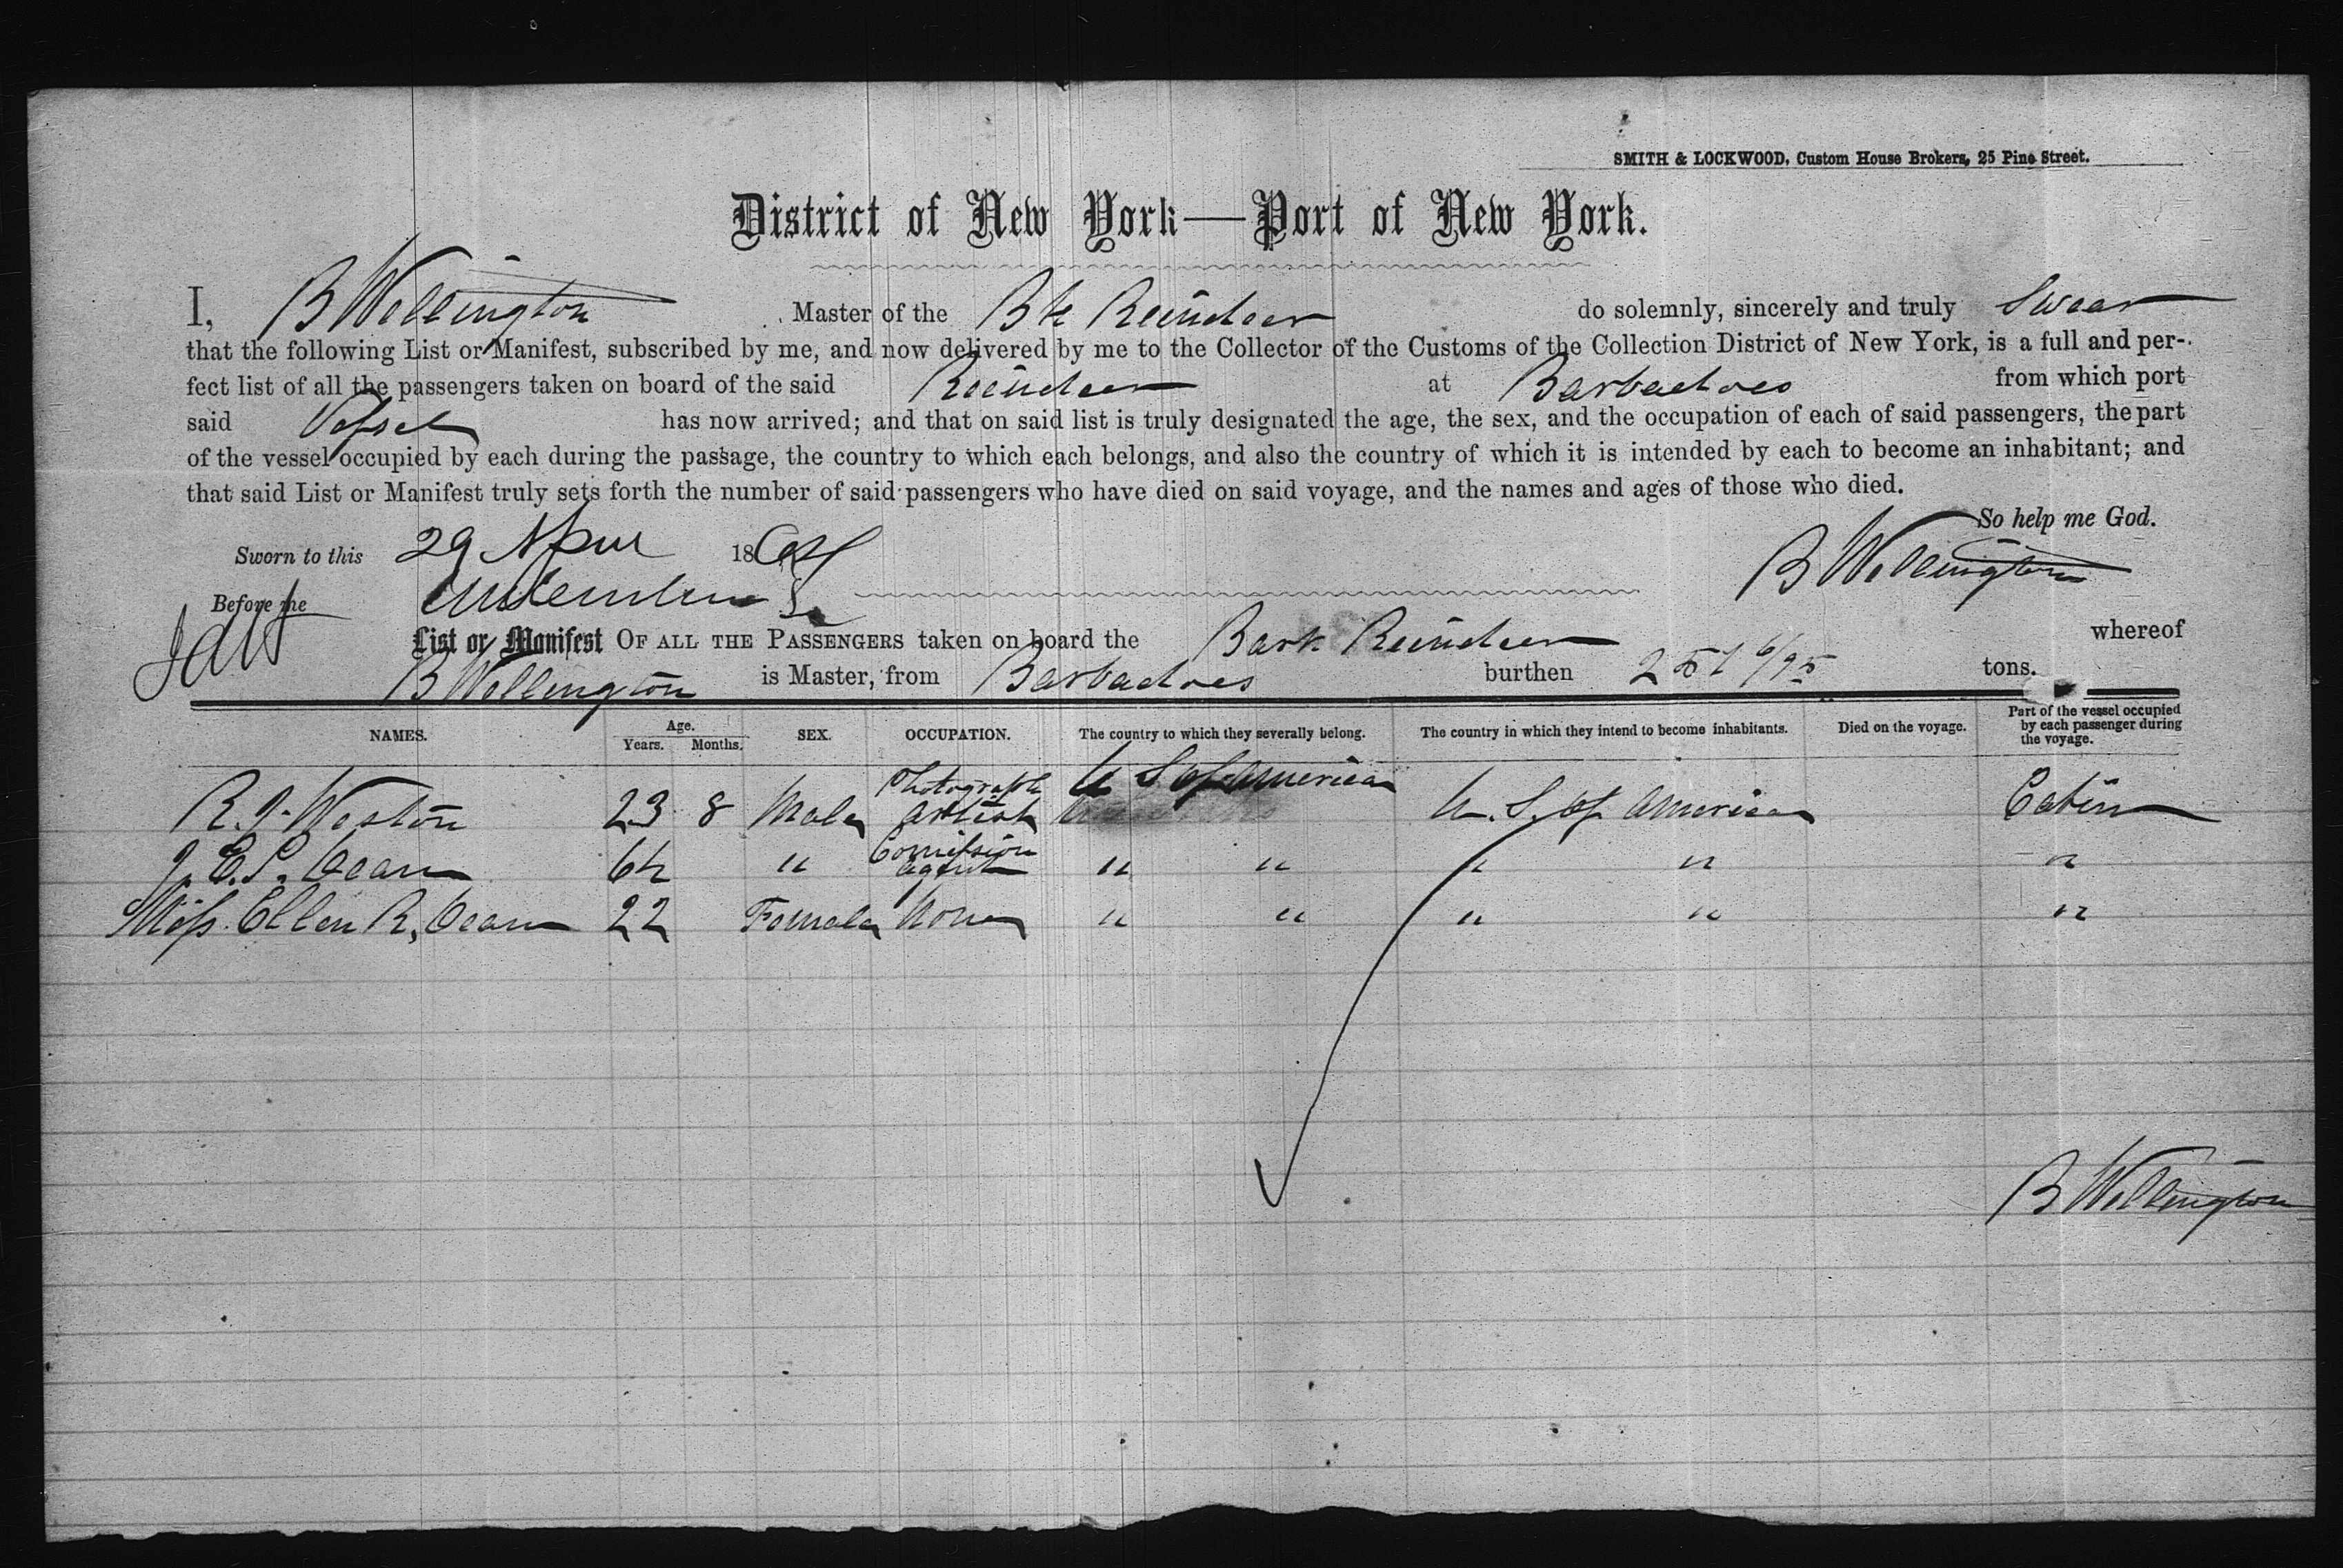 SMITH & LOCKWOOD, Custom House Brokers, 25 Pine Street.
District of New York—Port of New York.
I, B Wellington Master of the Bk Reindeer do solemnly, sincerely and truly Swear
that the following List or Manifest, subscribed by me, and now delivered by me to the Collector of the Customs of the Collection District of New York, is a full and per-
fect list of all the passengers taken on board of the said Reindeer at Barbadoes from which port
said Vessel has now arrived; and that on said list is truly designated the age, the sex, and the occupation of each of said passengers, the part
of the vessel occupied by each during the passage, the country to which each belongs, and also the country of which it is intended by each to become an inhabitant; and
that said List or Manifest truly sets forth the number of said passengers who have died on said voyage, and the names and ages of those who died.
So help me God.
Sworn to this 29 April 1864 B Wellington
Before me
List or Manifest OF ALL THE PASSENGERS taken on board the Bark Reindeer whereof
B Wellington is Master, from Barbadoes burthen 251 6/95 tons.
NAMES. Age. Years. Months. SEX. OCCUPATION. The country to which they severally belong. The country in which they intend to become inhabitants. Died on the voyage. Part of the vessel occupied by each passenger during the voyage.
R. J. Weston 23 8 Male Photograph Artist U S of America U. S. of America Cabin
J. E. P. Dean 64 " Comission agent " " " " "
Miss. Ellen R. Dean 22 Female None " " " " "
B Wellington